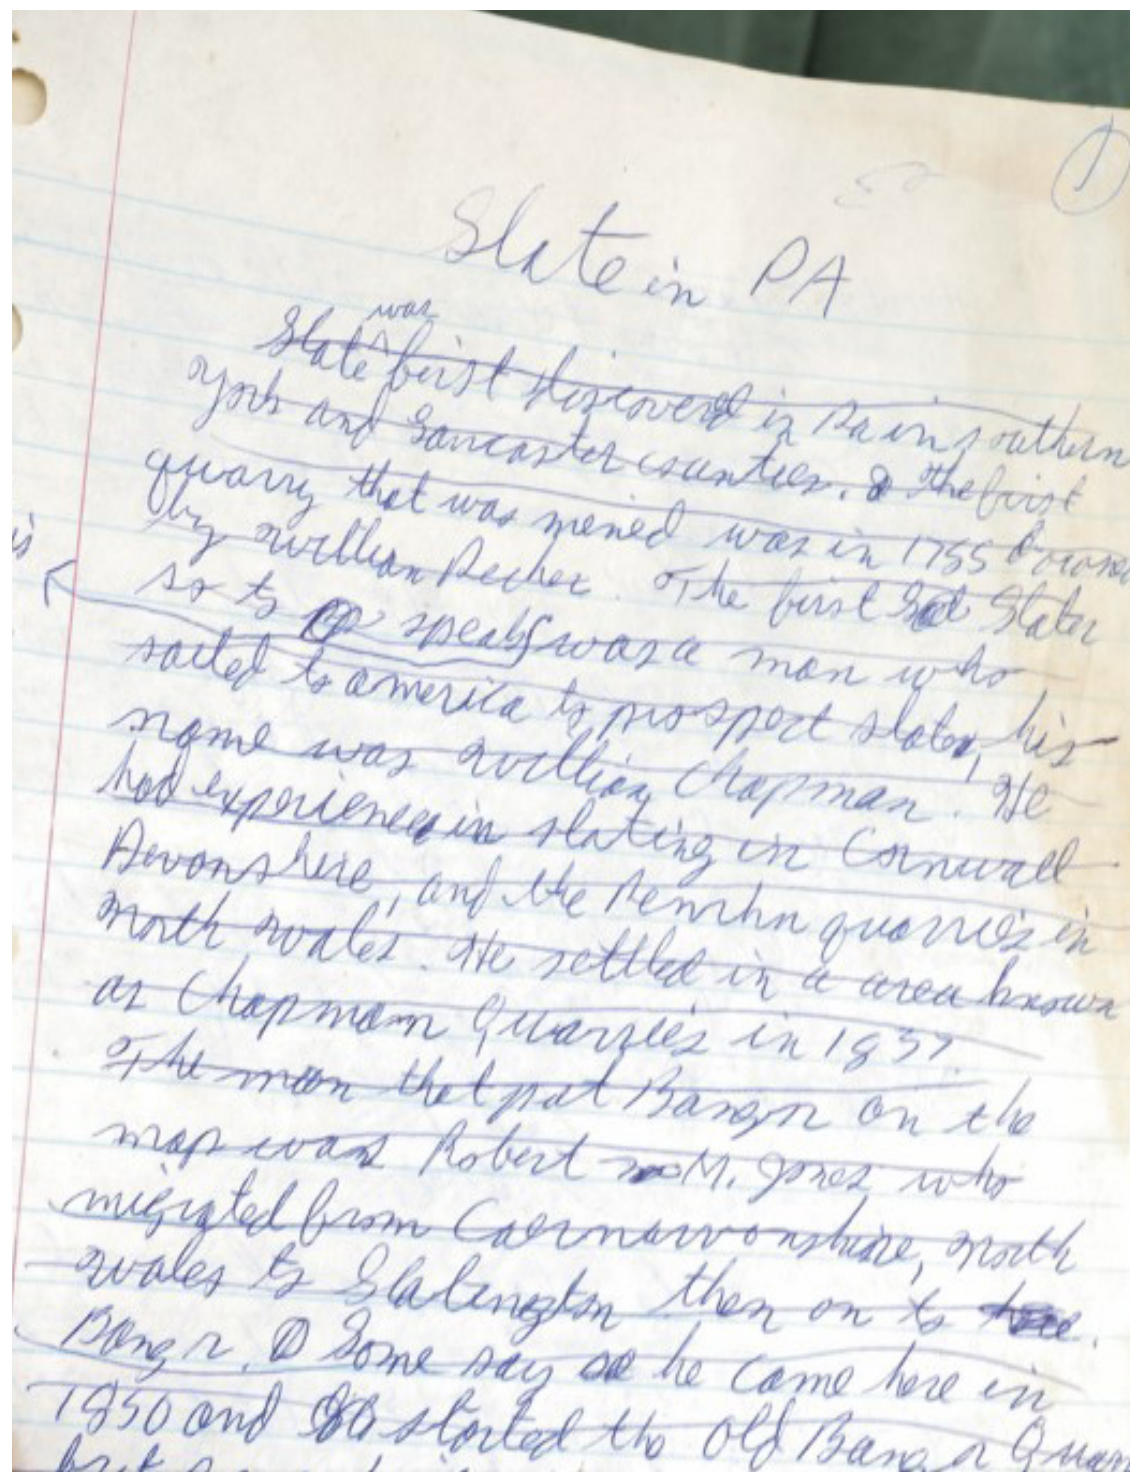 1
Slate in PA
was
Slate first discovered in Pa in southern
York and Lancaster counties. The first
quarry that was mened was in 1755 &
by William Decher. The first Slater
is
so to speak was a man who
sailed to america to prospect slate, his
name was William Chapman. He
had experience in slating in Cornwall
Devonshire, and the Penrhn quarries in
North Wales. He settled in a area known
as Chapman Quarries in 1837.
The man that put Bangor on the
map was Robert M. Jones who
migrated from Caernarvonshire, North
Wales to Slatington then on to
Bangor. Some say he came here in
1850 and started the Old Bangor Quarr